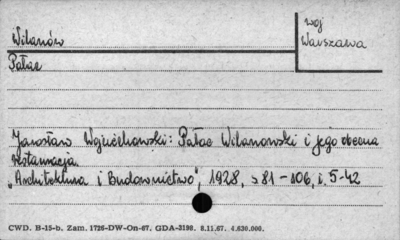 Wilanów
woj
Warszawa
Pałac
Jarosław Wojciechowski: Pałac Wilanowski i jego obecna
restauracja.
„Architektura i Budownictwo", 1928, s 81 - 106, i. 5-42
CWD. B-15-b. Zam. 1726-DW-On-67. GDA-3198. 8.11.67. 4.630.000.